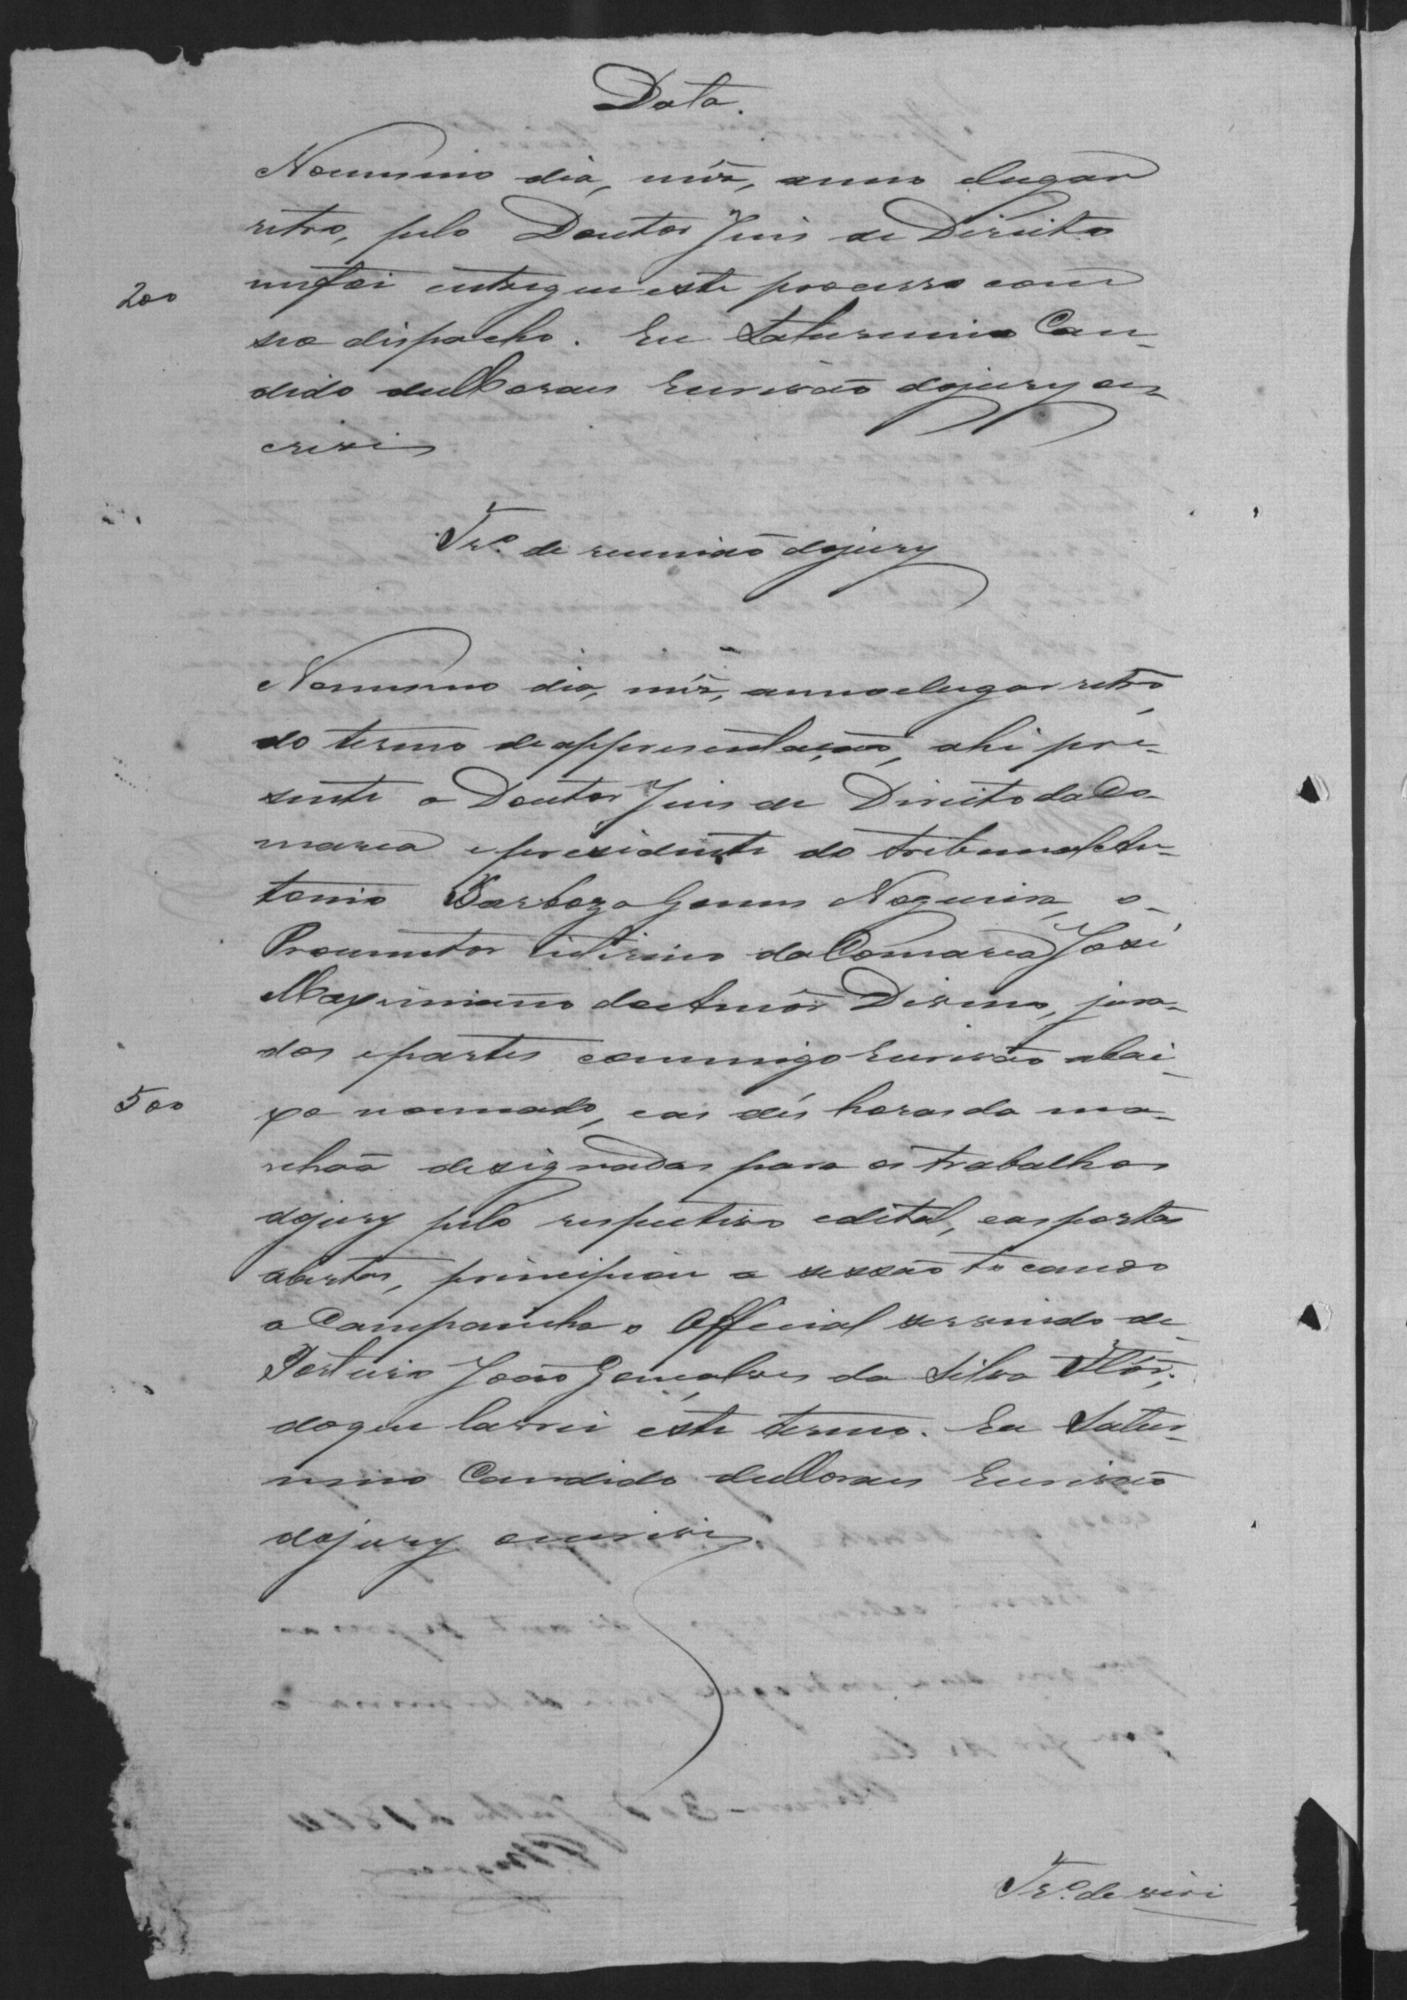 Data.
No mesmo dia, mês, anno e lugar
retro, pelo Doutor Juis de Direito
me foi entregue este processo com
seo dispacho. Eu Saturnino Can-
dido de Moraes Escrivão do jury es-
crevi
200
Tr.º de reunião do jury
No mesmo dia, mês, anno e lugar retro
do termo de appresentação, ahi pre-
sente o Doutor Juis de Direito da Co-
marca e presidente do tribunal An-
tonio Barboza Gomes Nogueira, o
Promotor interino da Comarca José
Maximiano do Amôr Divino, jura-
dos e partes commigo Escrivão abai-
xo nomeado, e as dés horas da ma-
nhaã designadas para os trabalhos
do jury pelo respectivo edital, e as portas
abertas, principiou a sessão tocando
a Campainha o Official servindo de
Porteiro João Gonçalves da Silva Flôr;
do que lavrei este termo. Eu Satur-
nino Candido de Moraes Escrivão
do jury escrevi
500
Tr.º de veri